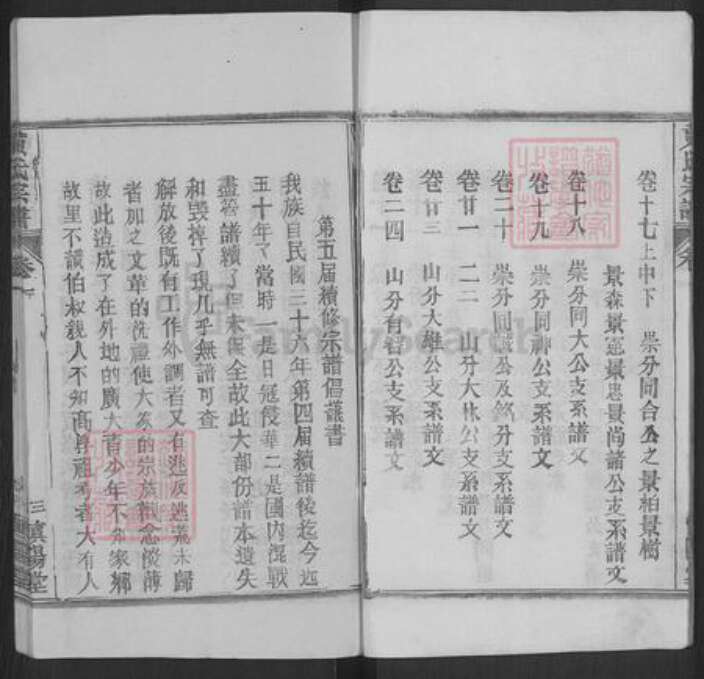 卷十七上中下　崇分同合公之景柏景樹
景森景憲景忠景尚諸公支系譜文
卷十八　崇分同大公支系譜文
卷十九　崇分同神公支系譜文
卷二十　崇分同公及分支系譜文
卷廿一　二二　山分大公支系譜文
卷廿三　山分大雄公支系譜文
卷二四　山分有智公支系譜文
第五届續修宗譜倡議書
我族自民國三十六年第四届續譜後迄今近
五十年了當時一是日冠侵華二是國内混戰
盡管譜續了但未全故此大部份譜本遺失
和毀掉了現几乎無譜可查
解放後既有工作外調者又有逃反逃荒未歸
者加之文革的洗禮使大家的宗族觀念淡薄
故此造成了在外地的廣大青少年不知家鄉
故里不識伯叔親人不知高曾祖考者大有人
氏宗譜
卷一
三
堂
FamilySearch